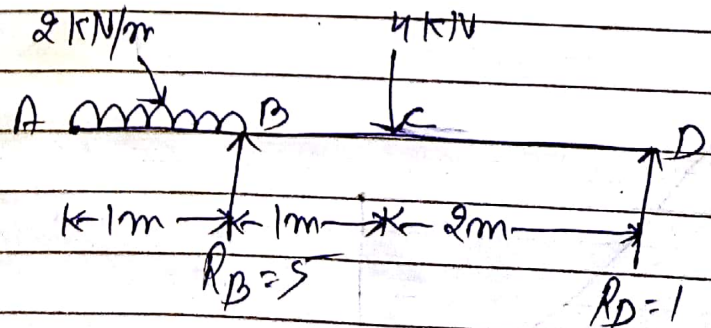 2 KN/m 4 KN
A B C D
1m 1m 2m
R_B = 5 R_D = 1